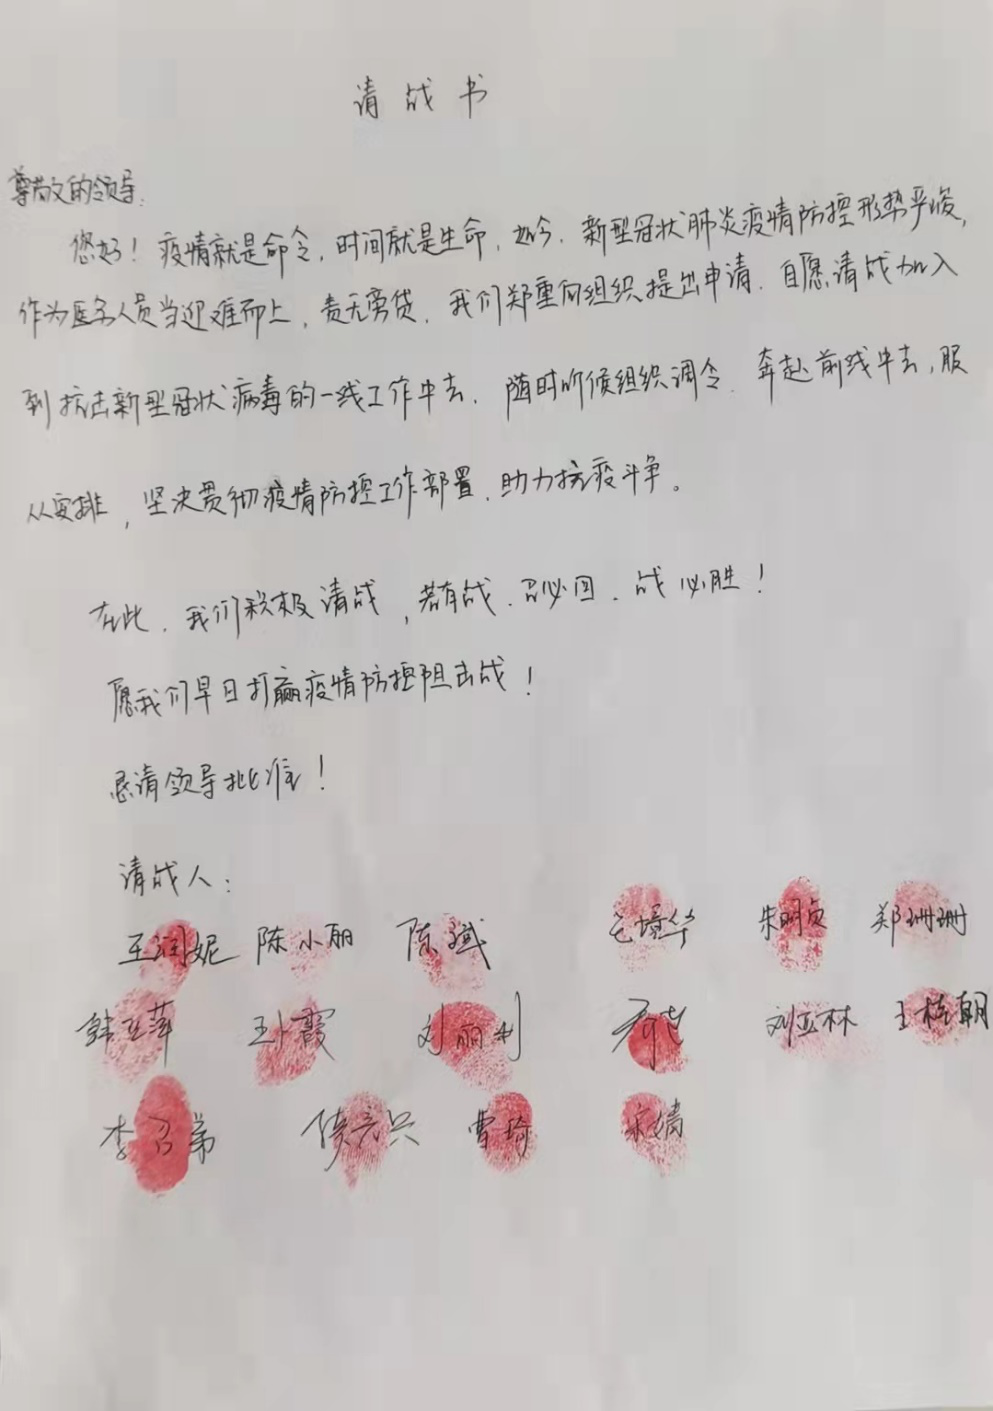 请战书
尊敬的领导:
您好！疫情就是命令,时间就是生命,如今,新型冠状肺炎疫情防控形势严峻,
作为医务人员当迎难而上,责无旁贷,我们郑重向组织提出申请,自愿请战加入
到抗击新型冠状病毒的一线工作中去,随时听候组织调令,奔赴前线中去,服
从安排,坚决贯彻疫情防控工作部署,助力抗疫斗争。
在此,我们积极请战,若有战,召必回,战必胜！
愿我们早日打赢疫情防控阻击战！
恳请领导批准！
请战人:
王润妮 陈小丽 陈斌 毛境华 朱明贞 郑珊珊
韩立萍 霞 刘丽利 刘亚林 王桂朝
李召弟 侯亮兴 曹琦 宋婧